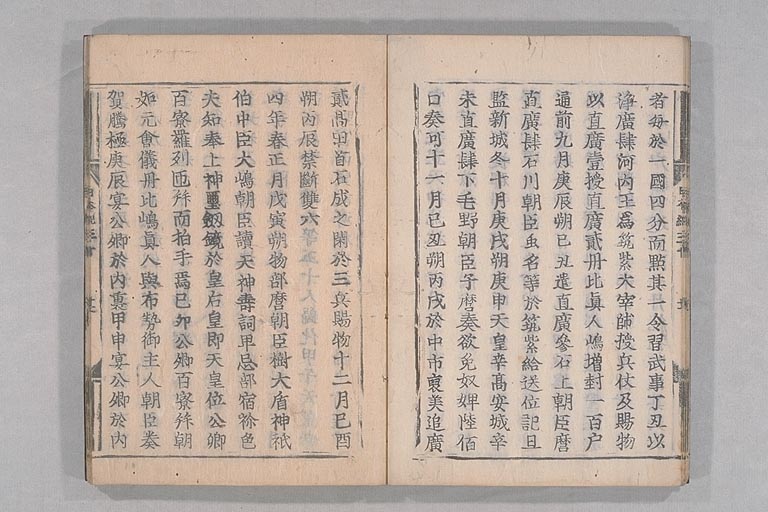 若毎於一國四分而點其一令習武事丁丑以
浄廣肆河内王爲筑紫大宰帥授兵仗及賜物
以直廣壹授直廣貳丹比眞人嶋増封一百户
通前九月庚辰朔己丑遣直廣參石上朝臣麿
直廣肆石川朝臣虫名等於筑紫給送位記且
監新城冬十月庚戌朔庚申天皇幸髙安城辛
未直廣肆下毛野朝臣子麿奏欲免奴婢陸佰
口奏可十一月己丑朔丙戌於中市裒美追廣
貳髙田首石成之閑於三兵賜物十二月己酉
朔丙辰禁斷雙六
四年春正月戊寅朔物部麿朝臣樹大盾神祇
伯中臣大嶋朝臣讀天神壽詞畢忌部宿祢色
夫知奉上神璽劒鏡於皇后皇后即天皇位公卿
百寮羅列匝拜而拍手焉己卯公卿百寮拜朝
如元會儀丹比嶋眞人與布勢御主人朝臣奏
賀騰極庚辰宴公卿於内裏甲申宴公卿於内